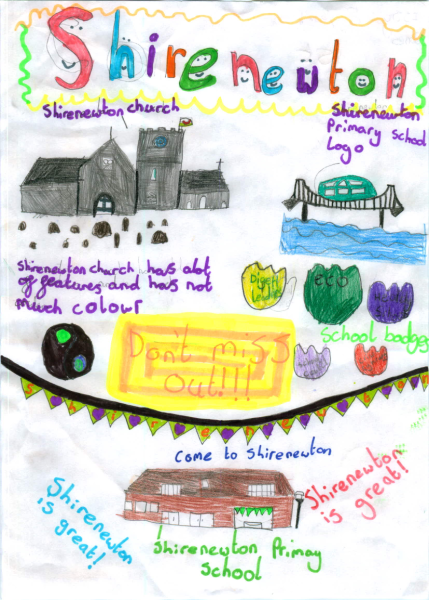 Shirenewton
Shirenewton church
Shirenewton
Primary school
Logo
Shirenewton church has alot
of features and has not
much colour
eco
School badges
Don't miss
out!!!
Come to Shirenewton
Shirenewton
is great!
Shirenewton
is great!
Shirenewton Primay
School